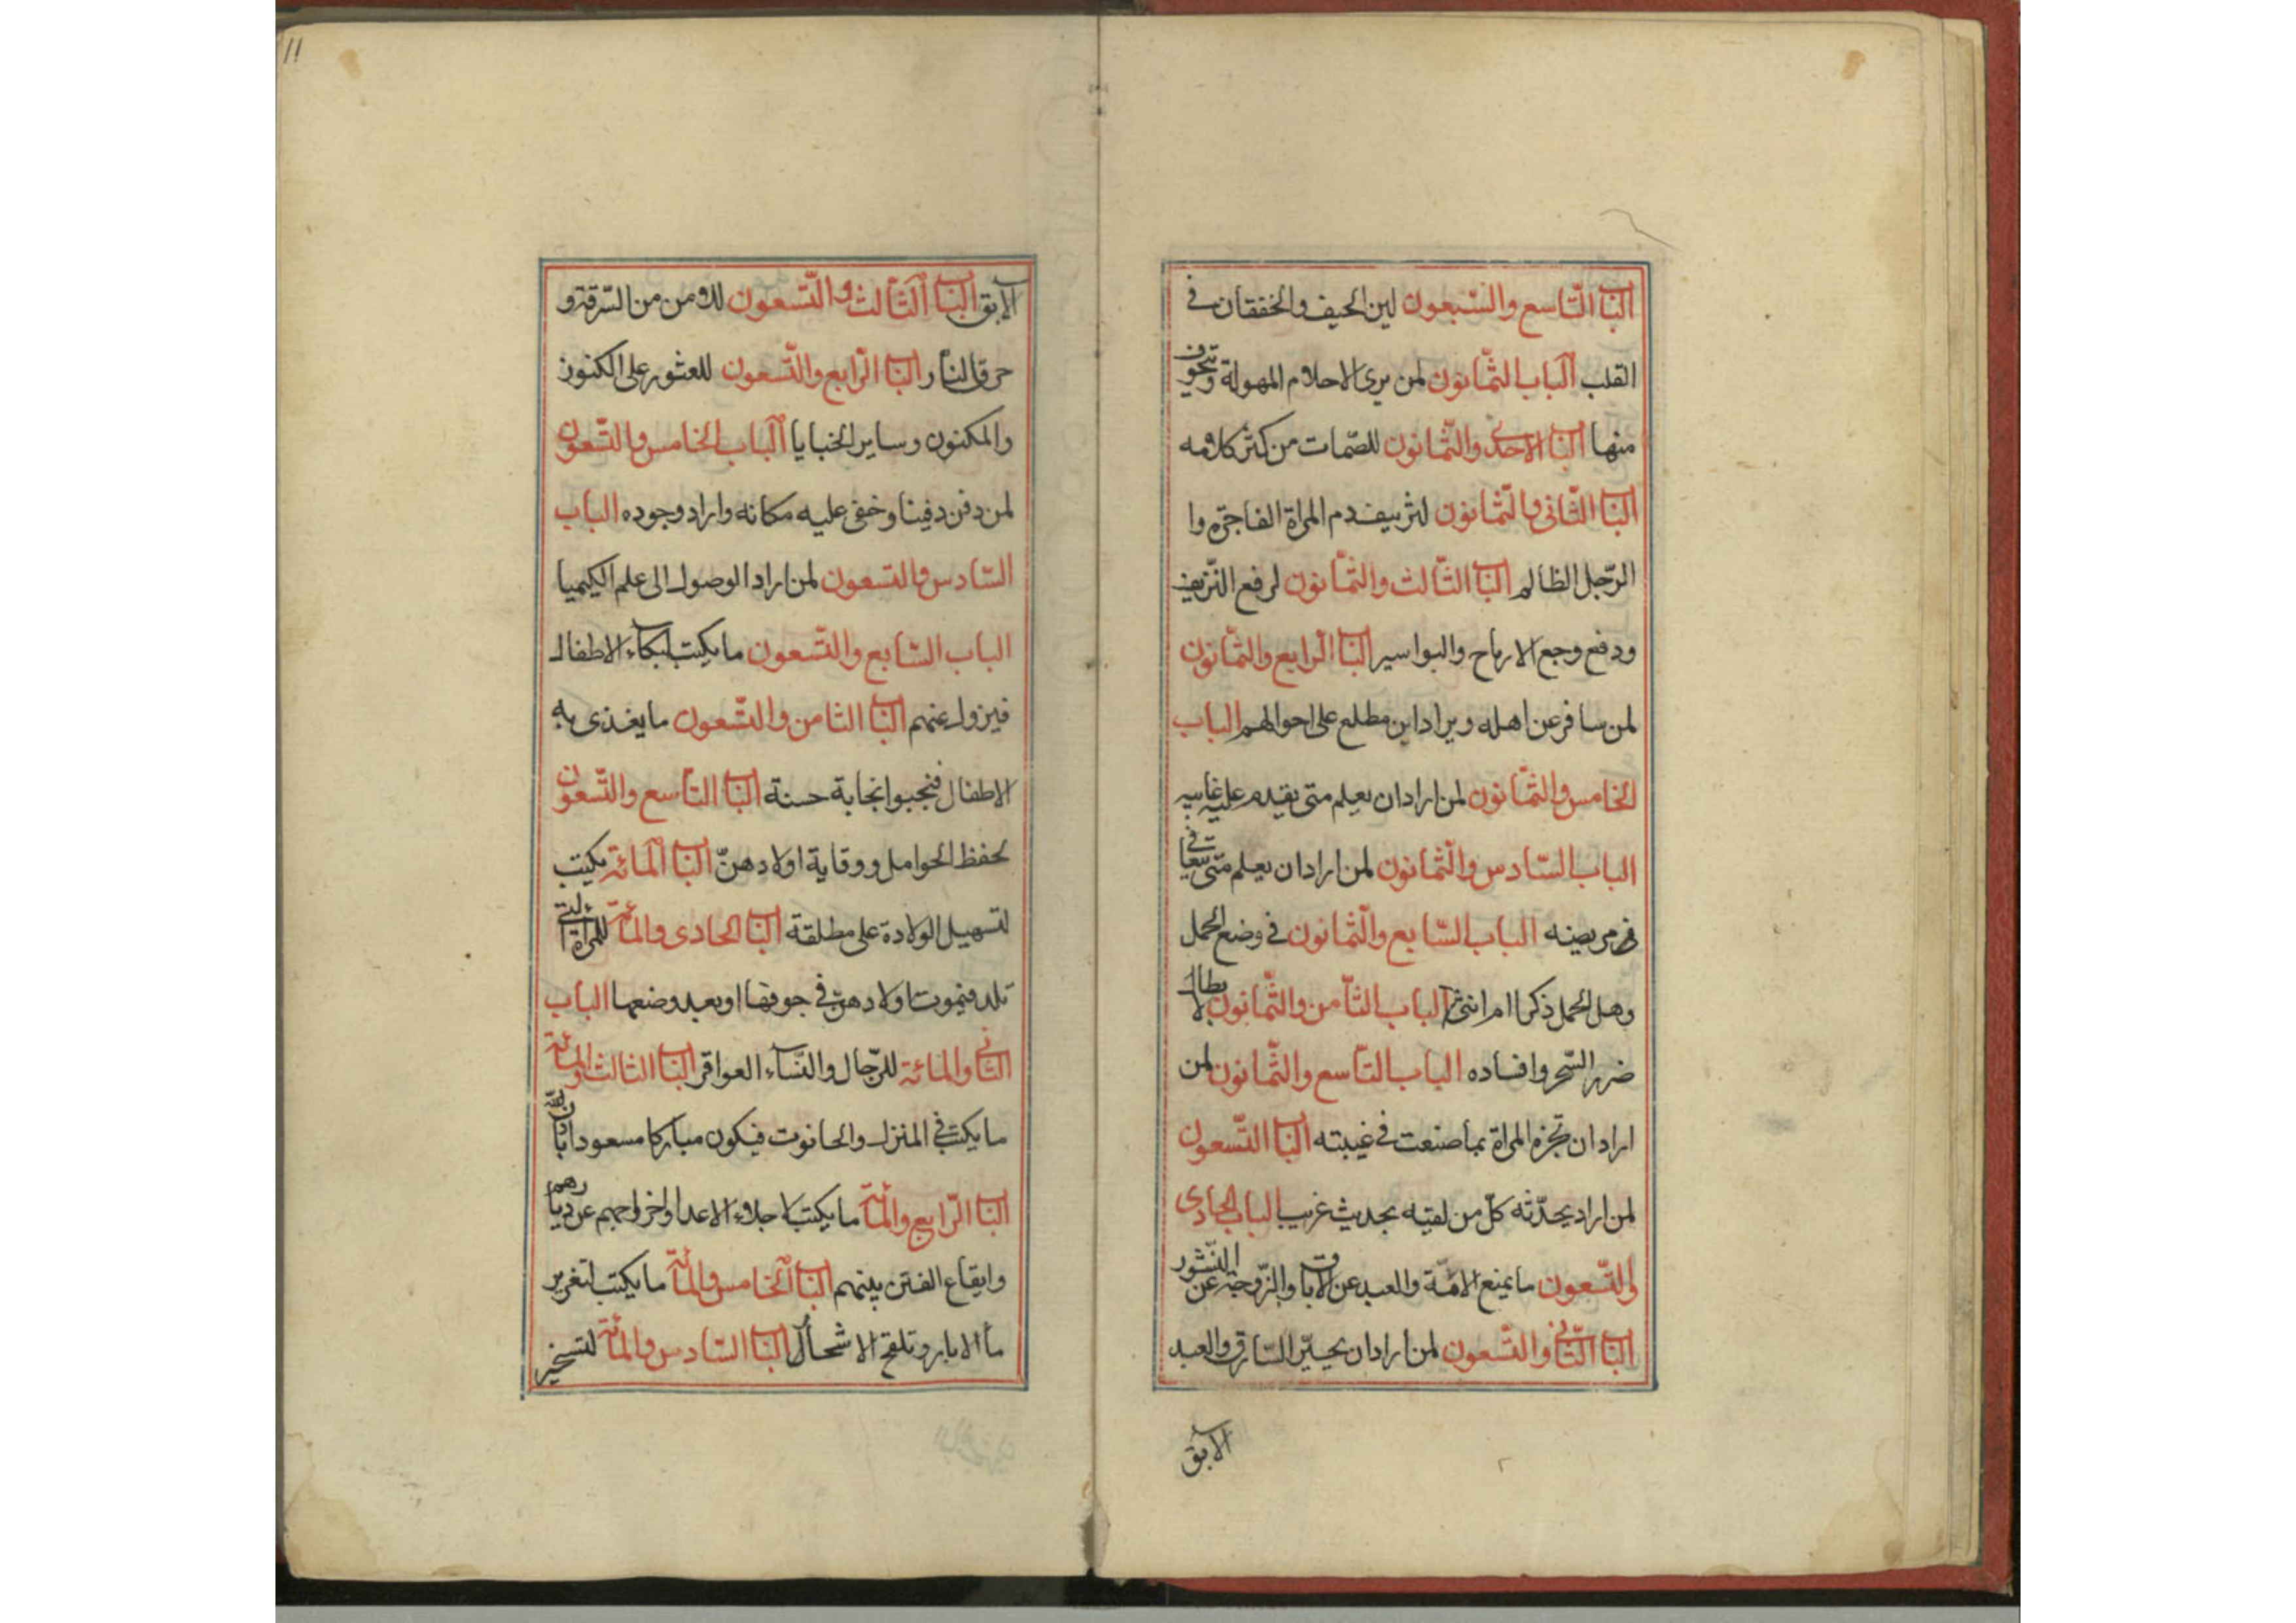 الباب التاسع والسبعون لين الحيف والخفقان في
القلب الباب الثمانون لمن يرى الاحلام المهولة وتخوف
منها الباب الاحدى والثمانون للصمات من كثر كلامه
الباب الثاني والثمانون لنزيف دم المراة الفاجرة وا
الرجل الظالم الباب الثالث والثمانون لرفع النزيف
ودفع وجع الارياح والبواسير الباب الرابع والثمانون
لمن سافر عن اهله ويراد اين مطلع على احوالهم الباب
الخامس والثمانون لمن اراد ان يعلم متى يقدم عليه غايبه
الباب السادس والثمانون لمن اراد ان يعلم متى يتعافى
مريضه الباب السابع والثمانون في وضع الحمل
وهل الحمل ذكرا ام انثى الباب الثامن والثمانون لابطال
ضرر السحر وافساده الباب التاسع والثمانون لمن
اراد ان تخبره المراة بما صنعت في غيبته الباب التسعون
لمن اراد يحدثه كل من لقيه بحديث غريب الباب الحادى
والتسعون ما يمنع الامة والعبد عن الاباق والزوجة عن النشور
الباب الثاني والتسعون لمن اراد ان يحير السارق والعبد
الابق
11
الابق الباب الثالث والتسعون للامن من السرقة و
حرق النار الباب الرابع والتسعون للعثور على الكنوز
والمكنون وساير الخبايا الباب الخامس والتسعون
لمن دفن دفينا وخفى عليه مكانه واراد وجوده الباب
السادس والتسعون لمن اراد الوصول الى علم الكيميا
الباب السابع والتسعون ما يكتب لبكاء الاطفال
فيزول عنهم الباب الثامن والتسعون ما يغذى به
الاطفال فينجبوا نجابة حسنة الباب التاسع والتسعون
لحفظ الحوامل ووقاية اولادهن الباب المائة يكتب
لتسهيل الولادة على مطلقة الباب الحادى والمائة للمراة التي
تلد فيموت اولادهن في جوفها او بعد وضعها الباب
الثاني والمائة للرجال والنساء العواقر الباب الثالث والمائة
ما يكتب في المنزل والحانوت فيكون مباركا مسعودا باذن الله
الباب الرابع والمائة ما يكتب لاجلاء الاعدا واخراجهم عن ديارهم
وايقاع الفتن بينهم الباب الخامس والمائة ما يكتب لتغزير
ما الابار وتلقح الاشجار الباب السادس والمائة لتسخير